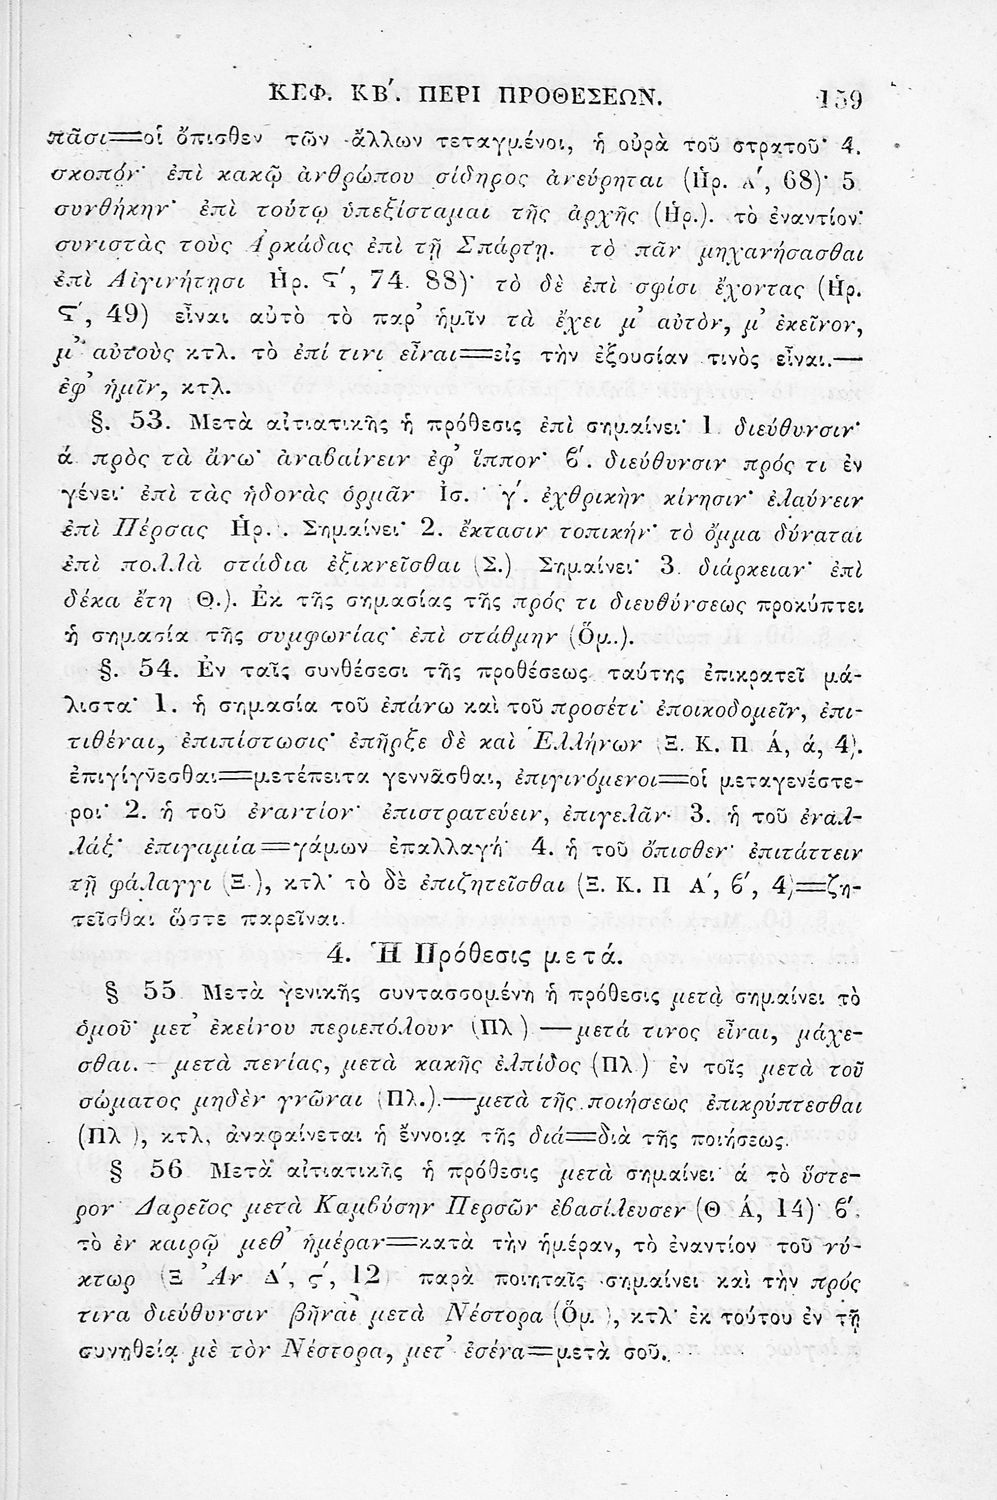 ΚΕΦ. ΚΒ΄. ΠΕΡΙ ΠΡΟΘΕΣΕΩΝ. 159
πᾶσι=οἱ ὄπισθεν τῶν ἄλλων τεταγμένοι, ἡ οὐρὰ τοῦ στρατοῦ· 4.
σκοπόν· ἐπὶ κακῷ ἀνθρώπου σίδηρος ἀνεύρηται (Ἡρ. Α΄, 68)· 5
συνθήκην· ἐπὶ τούτῳ ὑπεξίσταμαι τῆς ἀρχῆς (Ἡρ.). τὸ ἐναντίον·
συνιστὰς τοὺς Ἀρκάδας ἐπὶ τῇ Σπάρτῃ. τὸ πᾶν μηχανήσασθαι
ἐπὶ Αἰγινήτῃσι Ἡρ. Ϛ΄, 74. 88)· τὸ δὲ ἐπὶ σφίσι ἔχοντας (Ἡρ.
Ϛ΄, 49) εἶναι αὐτὸ τὸ παρ᾽ ἡμῖν τὰ ἔχει μ᾽ αὐτὸν, μ᾽ ἐκεῖνον,
μ᾽ αὐτοὺς κτλ. τὸ ἐπί τινι εἶναι=εἰς τὴν ἐξουσίαν τινὸς εἶναι.—
ἐφ᾽ ἡμῖν, κτλ.
§. 53. Μετὰ αἰτιατικῆς ἡ πρόθεσις ἐπὶ σημαίνει· 1. διεύθυνσιν·
ά πρὸς τὰ ἄνω· ἀναβαίνειν ἐφ᾽ ἵππον· ϐ΄. διεύθυνσιν πρός τι ἐν
γένει· ἐπὶ τὰς ἡδονὰς ὁρμᾶν Ἰσ. γ΄. ἐχθρικὴν κίνησιν· ἐλαύνειν
ἐπὶ Πέρσας Ἡρ. . Σημαίνει· 2. ἔκτασιν τοπικήν· τὸ ὄμμα δύναται
ἐπὶ πολλὰ στάδια ἐξικνεῖσθαι (Σ.) Σημαίνει· 3. διάρκειαν· ἐπὶ
δέκα ἔτη Θ.). Ἐκ τῆς σημασίας τῆς πρός τι διευθύνσεως προκύπτει
ἡ σημασία τῆς συμφωνίας· ἐπὶ στάθμην (Ὅμ..).
§. 54. Ἐν ταῖς συνθέσεσι τῆς προθέσεως ταύτης ἐπικρατεῖ μά-
λιστα· 1. ἡ σημασία τοῦ ἐπάνω καὶ τοῦ προσέτι· ἐποικοδομεῖν, ἐπι-
τιθέναι, ἐπιπίστωσις· ἐπῆρξε δὲ καὶ Ἑλλήνων (Ξ. Κ. Π Ά, ά, 4).
ἐπιγίγνεσθαι=μετέπειτα γεννᾶσθαι, ἐπιγινόμενοι=οἱ μεταγενέστε-
ροι· 2. ἡ τοῦ ἐναντίον· ἐπιστρατεύειν, ἐπιγελᾶν· 3. ἡ τοῦ ἐναλ-
λάξ· ἐπιγαμία=γάμων ἐπαλλαγή· 4. ἡ τοῦ ὄπισθεν· ἐπιτάττειν
τῇ φάλαγγι (Ξ.), κτλ· τὸ δὲ ἐπιζητεῖσθαι (Ξ. Κ. Π Α΄, ϐ΄, 4)=ζη-
τεῖσθαι ὥστε παρεῖναι.
4. Ἡ Πρόθεσις μετά.
§ 55 Μετὰ γενικῆς συντασσομένη ἡ πρόθεσις μετὰ σημαίνει τὸ
ὁμοῦ· μετ᾽ ἐκείνου περιεπόλουν (Πλ) —μετά τινος εἶναι, μάχε-
σθαι. — μετὰ πενίας, μετὰ κακῆς ἐλπίδος (Πλ.) ἐν τοῖς μετὰ τοῦ
σώματος μηδὲν γνῶναι (Πλ.).—μετὰ τῆς ποιήσεως ἐπικρύπτεσθαι
(Πλ ), κτλ, ἀναφαίνεται ἡ ἔννοια τῆς διά=διὰ τῆς ποιήσεως.
§ 56 Μετὰ αἰτιατικῆς ἡ πρόθεσις μετὰ σημαίνει· ά τὸ ὕστε-
ρον· Δαρεῖος μετὰ Καμβύσην Περσῶν ἐβασίλευσεν (Θ Ά, 14)· ϐ΄.
τὸ ἐν καιρῷ μεθ᾽ ἡμέραν=κατὰ τὴν ἡμέραν, τὸ ἐναντίον τοῦ νύ-
κτωρ (Ξ Ἀν Δ΄, ϛ΄, 12) παρὰ ποιηταῖς σημαίνει καὶ τὴν πρός
τινα διεύθυνσιν βῆναι μετὰ Νέστορα (Ὅμ. ), κτλ· ἐκ τούτου ἐν τῇ
συνηθείᾳ μὲ τὸν Νέστορα, μετ᾽ ἐσένα=μετὰ σοῦ.